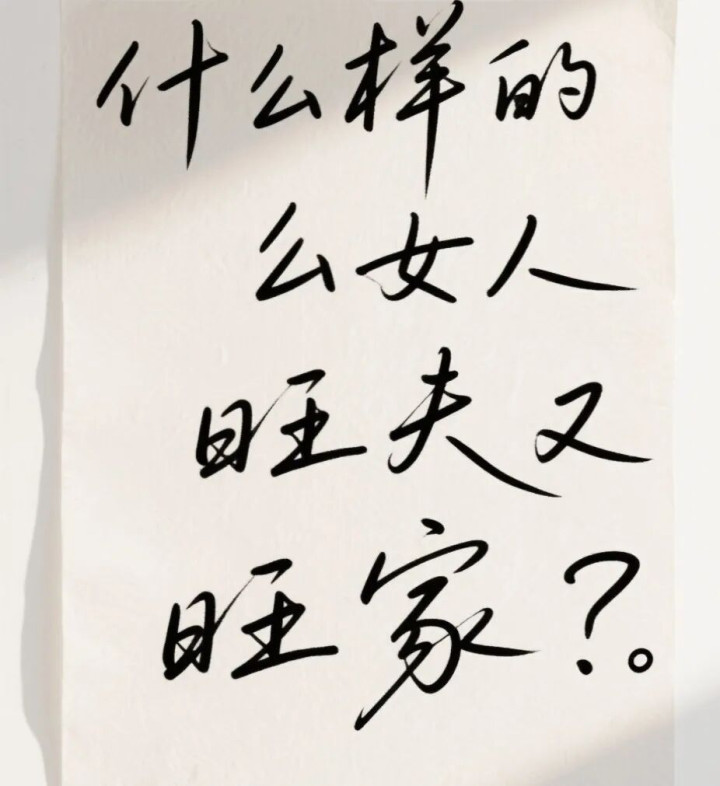 什么样的
么女人
旺夫又
旺家?。